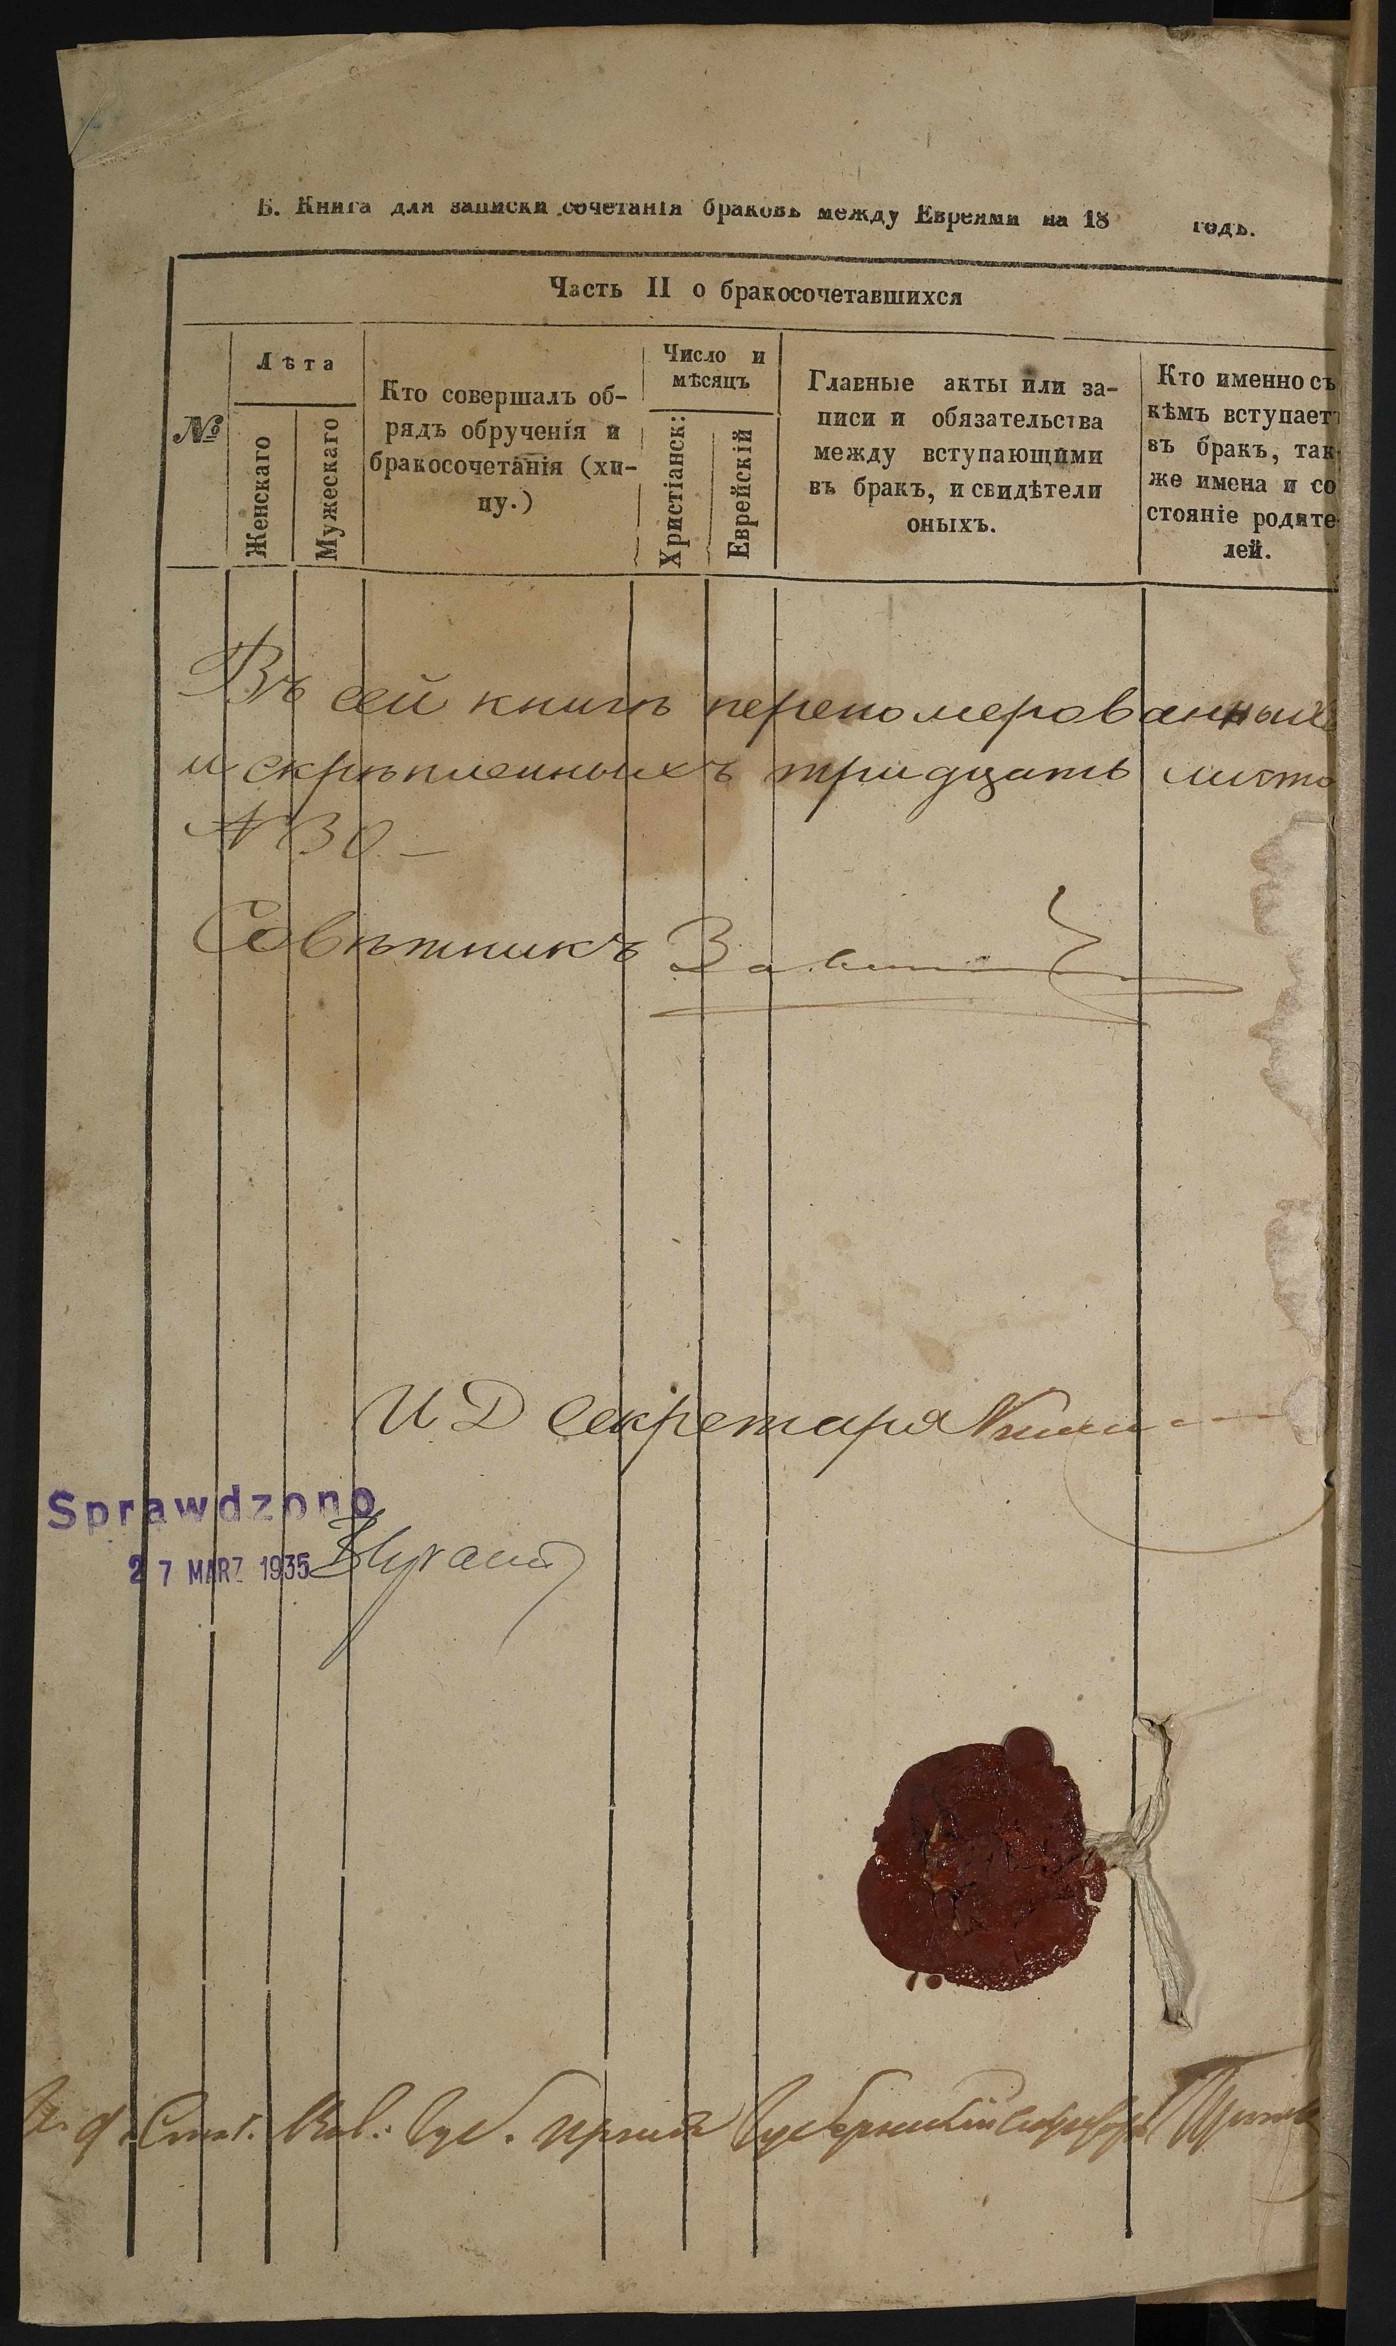 Б. Книга для записки сочетанія браковъ между Евреями на 18 годъ.
Часть II о бракосочетавшихся
№
Лѣта
Женскаго
Мужескаго
Кто совершалъ об-
рядъ обрученія и
бракосочетанія (хи-
пу.)
Число и
мѣсяцъ
Христіанск:
Еврейскій
Главные акты или за-
писи и обязательства
между вступающими
въ бракъ, и свидѣтели
оныхъ.
Кто именно съ
кѣмъ вступаетъ
въ бракъ, так-
же имена и со
стояніе родите-
лей.
Въ сей книгѣ перепомерованныхъ
и скрѣпленныхъ тридцать листо
№ 30 —
Совѣтникъ
И Д Секретаря
Sprawdzono
27 MARZ 1935
Губ.